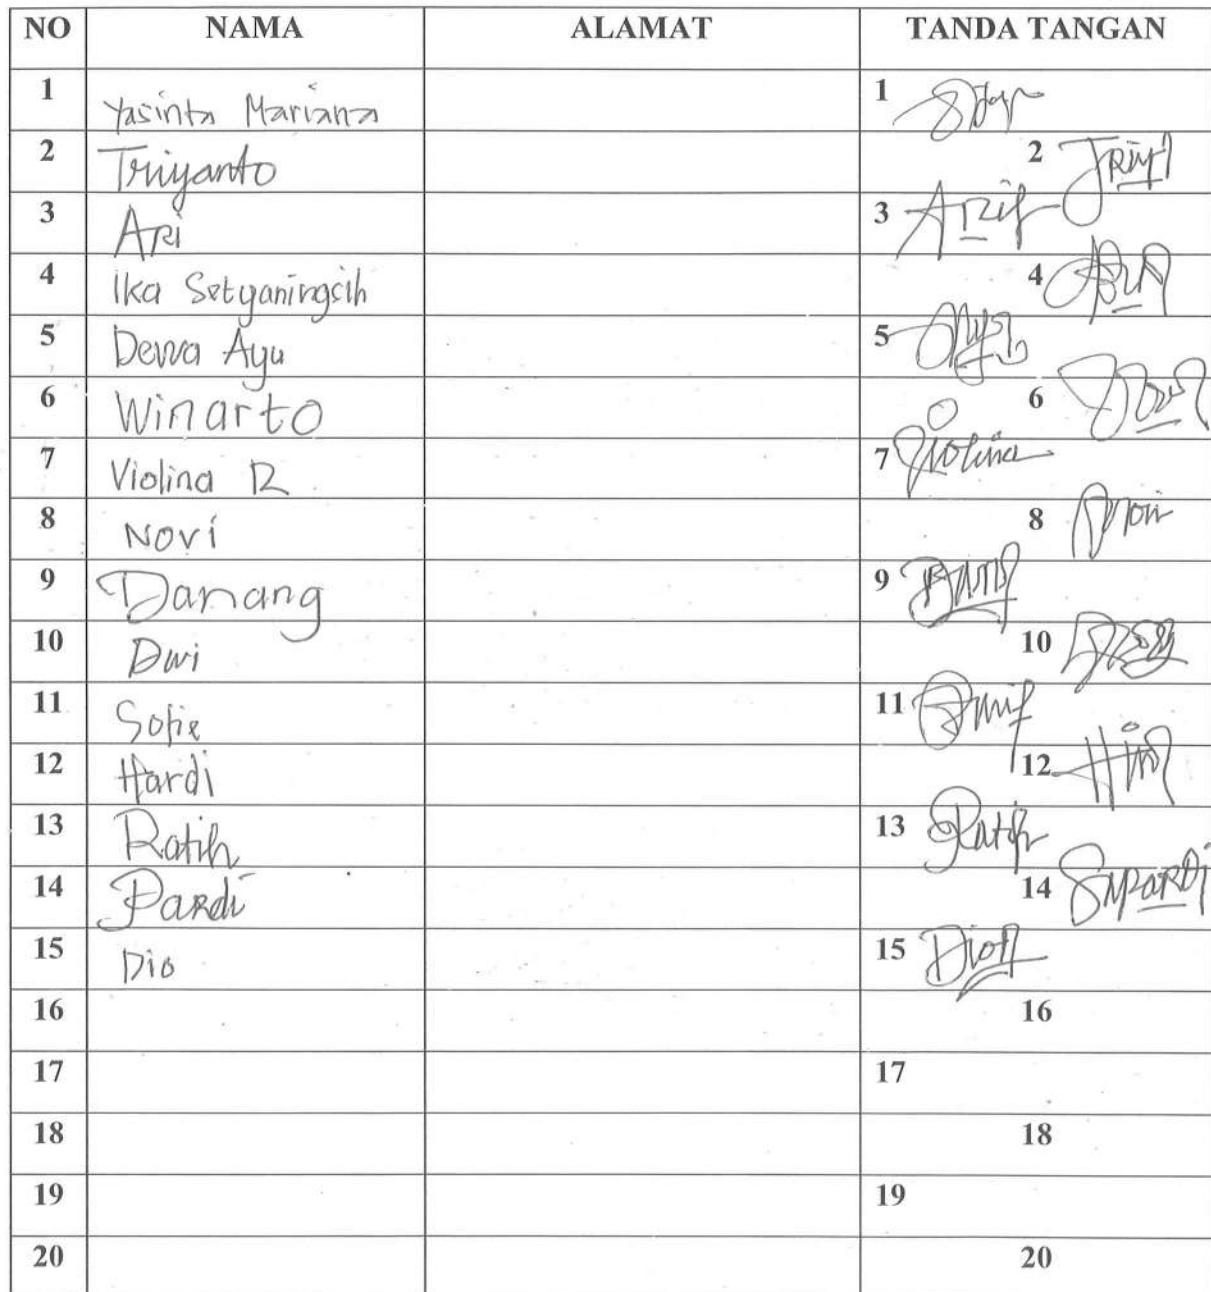 NO NAMA ALAMAT TANDA TANGAN
1 Yasinta Mariana 1
2 Triyanto 2
3 Ari 3
4 Ika Setyaningsih 4
5 Dewa Ayu 5
6 Winarto 6
7 Violina R 7 Violina
8 Novi 8
9 Danang 9
10 Dwi 10
11 Sofie 11
12 Hardi 12
13 Ratih 13 Ratih
14 Pardi 14 Supardi
15 Dio 15 Dion
16 16
17 17
18 18
19 19
20 20